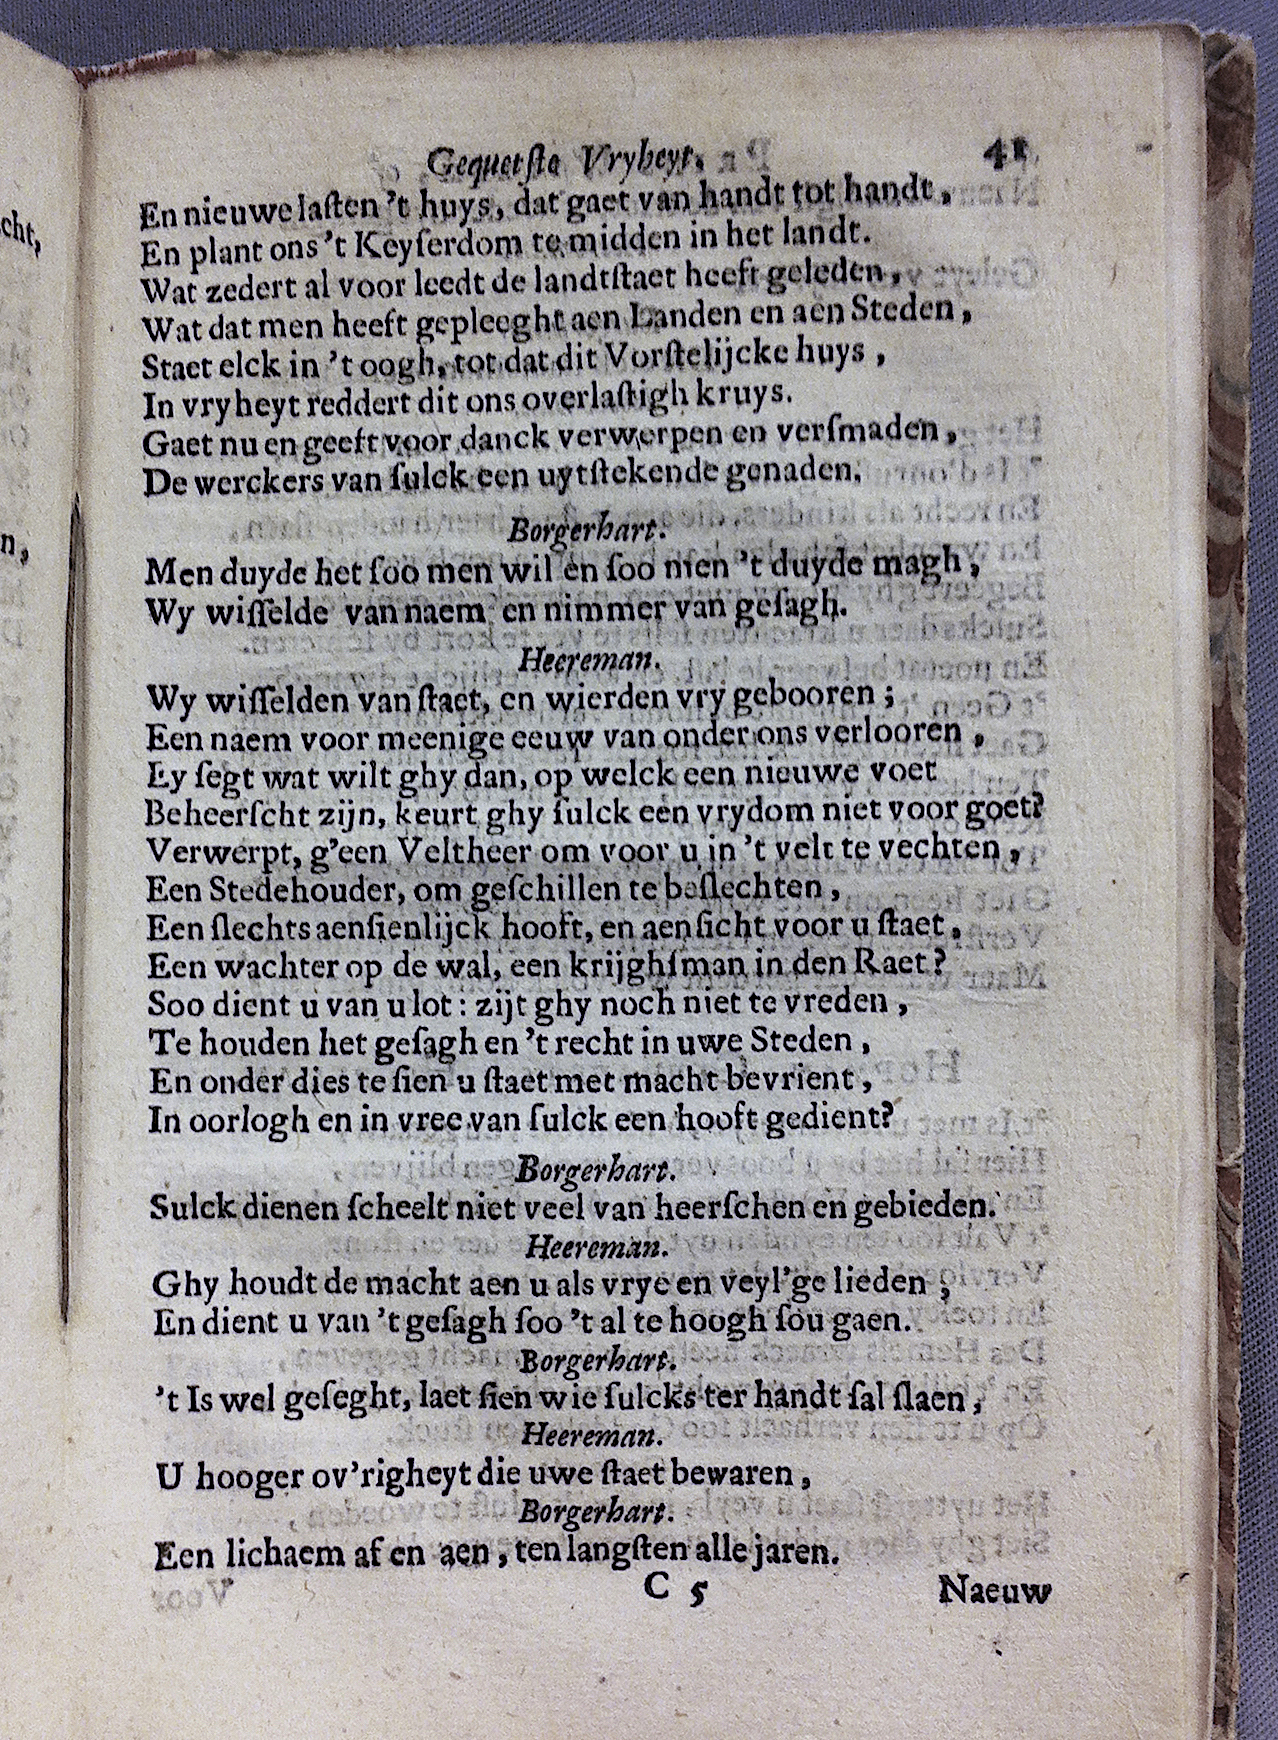 Gequetste Vryheyt. 41
En nieuwe lasten 't huys, dat gaet van handt tot handt,
En plant ons 't Keyserdom te midden in het landt.
Wat zedert al voor leedt de landtstaet heeft geleden,
Wat dat men heeft gepleeght aen Landen en aen Steden,
Staet elck in 't oogh, tot dat dit Vorstelijcke huys,
In vryheyt reddert dit ons overlastigh kruys.
Gaet nu en geeft voor danck verwerpen en versmaden,
De werckers van sulck een uytstekende genaden.
Borgerhart.
Men duyde het soo men wil en soo men 't duyde magh,
Wy wisselde van naem en nimmer van gesagh.
Heereman.
Wy wisselden van staet, en wierden vry gebooren;
Een naem voor meenige eeuw van onder ons verlooren,
Ey segt wat wilt ghy dan, op welck een nieuwe voet
Beheerscht zijn, keurt ghy sulck een vrydom niet voor goet?
Verwerpt, g'een Veltheer om voor u in 't velt te vechten,
Een Stedehouder, om geschillen te beslechten,
Een slechts aensienlijck hooft, en aensicht voor u staet,
Een wachter op de wal, een krijghsman in den Raet?
Soo dient u van u lot: zijt ghy noch niet te vreden,
Te houden het gesagh en 't recht in uwe Steden,
En onder dies te sien u staet met macht bevrient,
In oorlogh en in vree van sulck een hooft gedient?
Borgerhart.
Sulck dienen scheelt niet veel van heerschen en gebieden.
Heereman.
Ghy houdt de macht aen u als vrye en veyl'ge lieden;
En dient u van 't gesagh soo 't al te hoogh sou gaen.
Borgerhart.
't Is wel geseght, laet sien wie sulcks ter handt sal slaen,
Heereman.
U hooger ov'righeyt die uwe staet bewaren,
Borgerhart.
Een lichaem af en aen, ten langsten alle jaren.
C 5 Naeuw